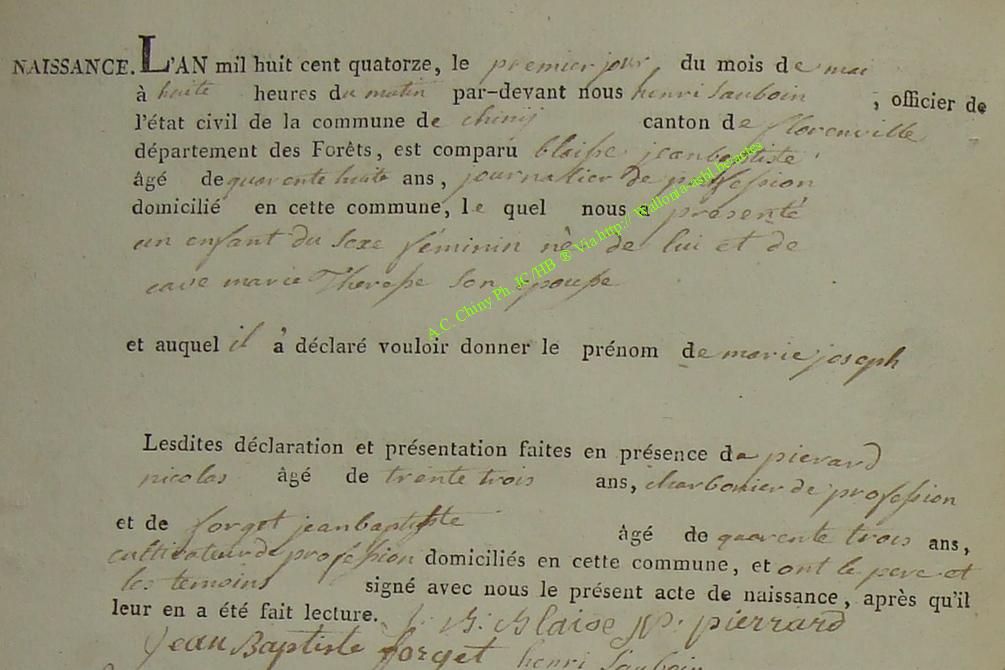 NAISSANCE. L'AN mil huit cent quatorze, le premier jour, du mois de mai
à huite heures du matin par-devant nous henri Sauboin, officier de
l'état civil de la commune de chinij canton de florenville
département des Forêts, est comparu blaisse jeanbaptiste
âgé de quarente huite ans, journalier de profession
domicilié en cette commune, le quel nous a présenté
un enfant du sexe féminin né de lui et de
cave marie Theresse son epouse
et auquel il a déclaré vouloir donner le prénom de marie joseph
Lesdites déclaration et présentation faites en présence de pierard
nicolas âgé de trente trois ans, charbonier de profession
et de forget jeanbaptiste âgé de quarente trois ans,
cultivateur de profession domiciliés en cette commune, et ont le pere et
les temoins signé avec nous le présent acte de naissance, après qu'il
leur en a été fait lecture. J. B. Blaise N. pierrard
Jean Baptiste forget henri Sauboin
A.C. Chiny Ph. JC/HB ® Via http:// Wallonia-asbl.be:actes